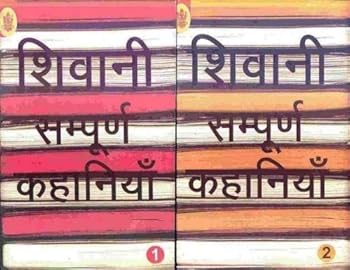 शिवानी
सम्पूर्ण
कहानियाँ
1
शिवानी
सम्पूर्ण
कहानियाँ
2